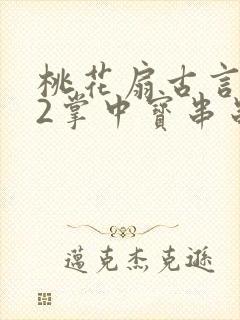 桃花扇古言
2掌中寶串
邁克杰克遜